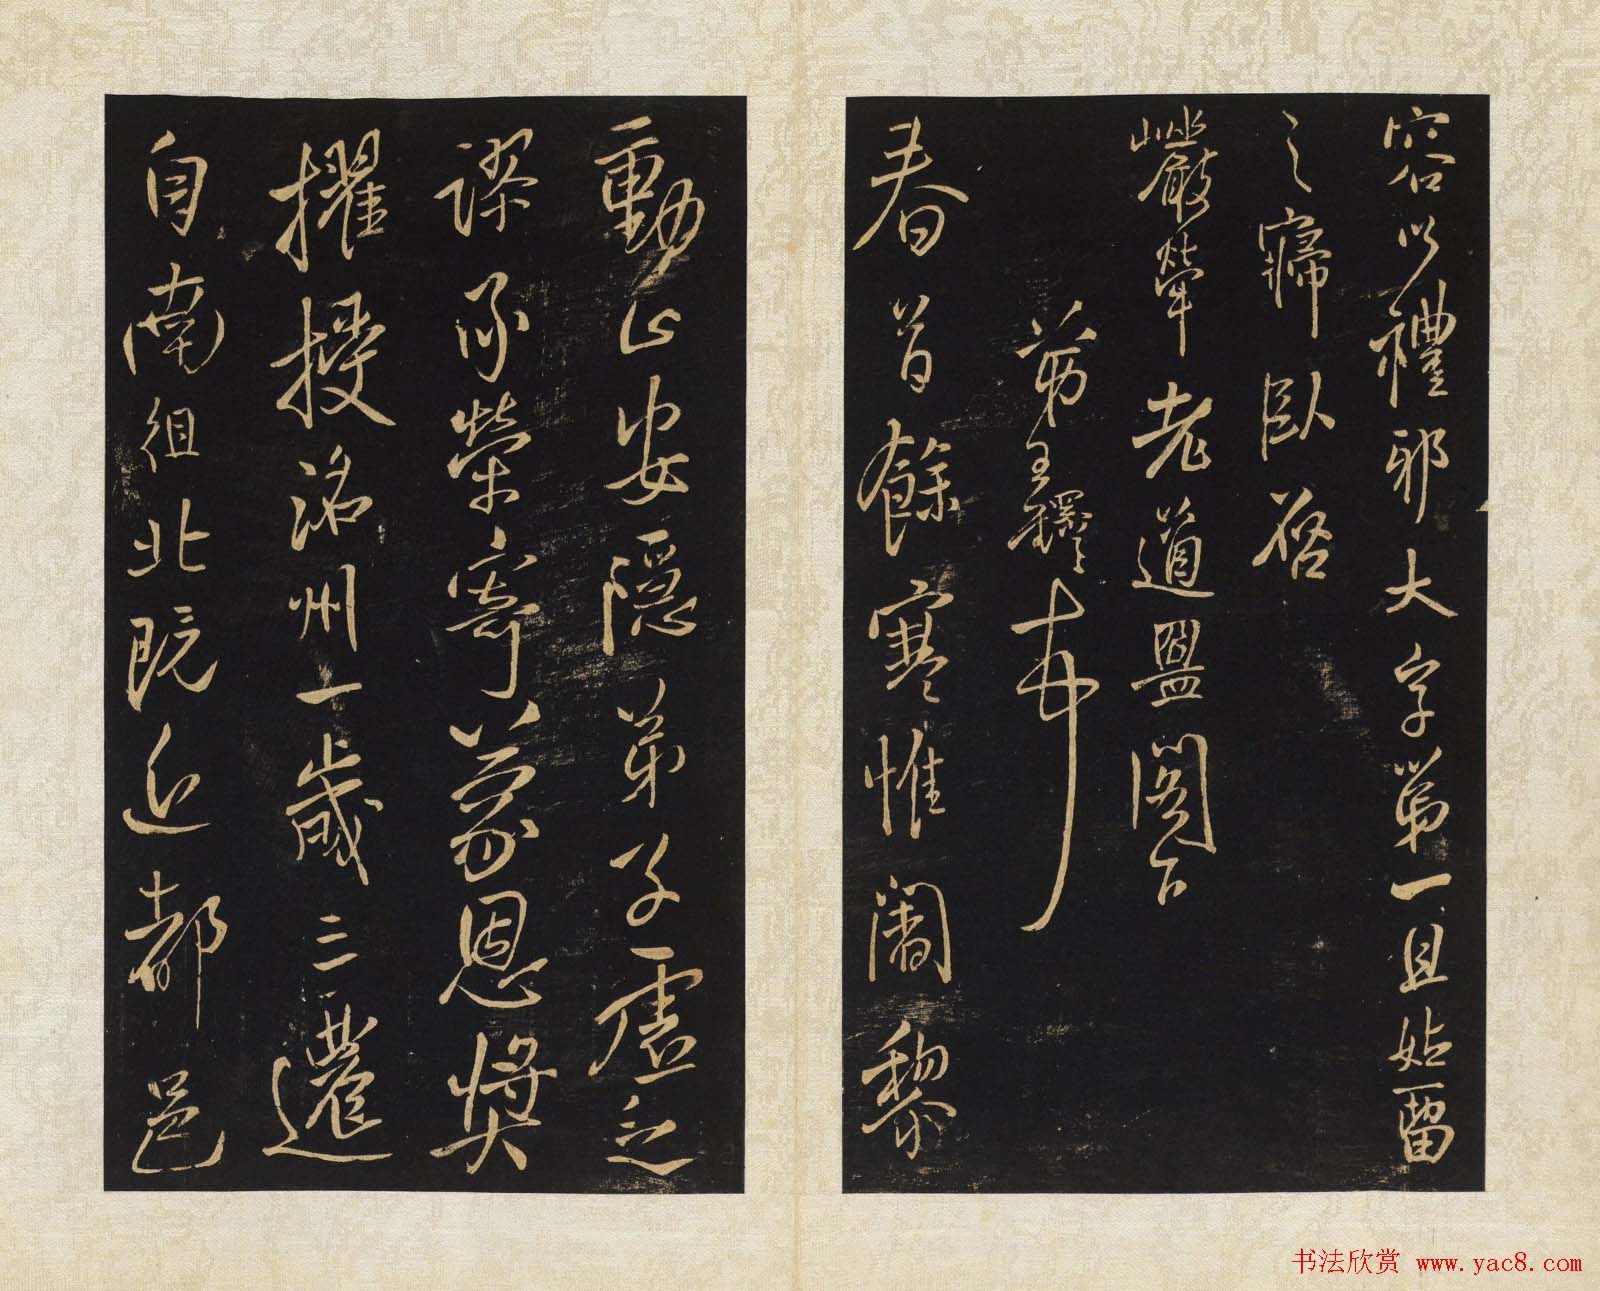 容以禮邪大字第一且姑留
之寤臥啓
巖犖老道盟閣下
弟王鐸
春首餘寒惟闍黎
動止安隱弟子虛乏
謬承榮寄蒙恩獎
擢授洺州一歲三遷
自南徂北既近都邑
书法欣赏 www.yac8.com